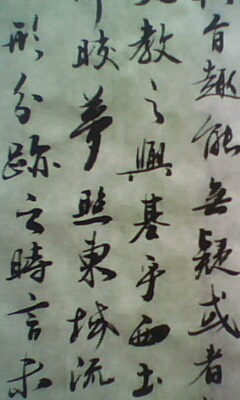 旨趣能無疑或者
教之興基乎西土
皎夢照東域流
形分跡之時言未